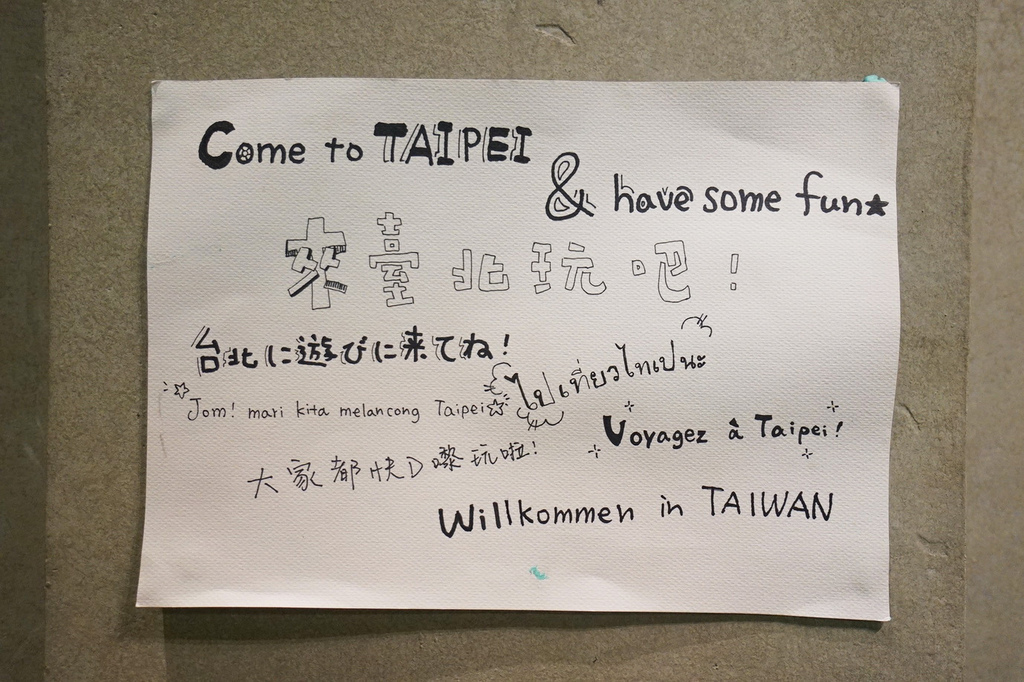 Come to TAIPEI
& have some fun★
來臺北玩吧！
台北に遊びに来てね！
ไปเที่ยวไทเปนะ
Jom! mari kita melancong Taipei☆
Voyagez à Taipei!
大家都快D嚟玩啦！
Willkommen in TAIWAN